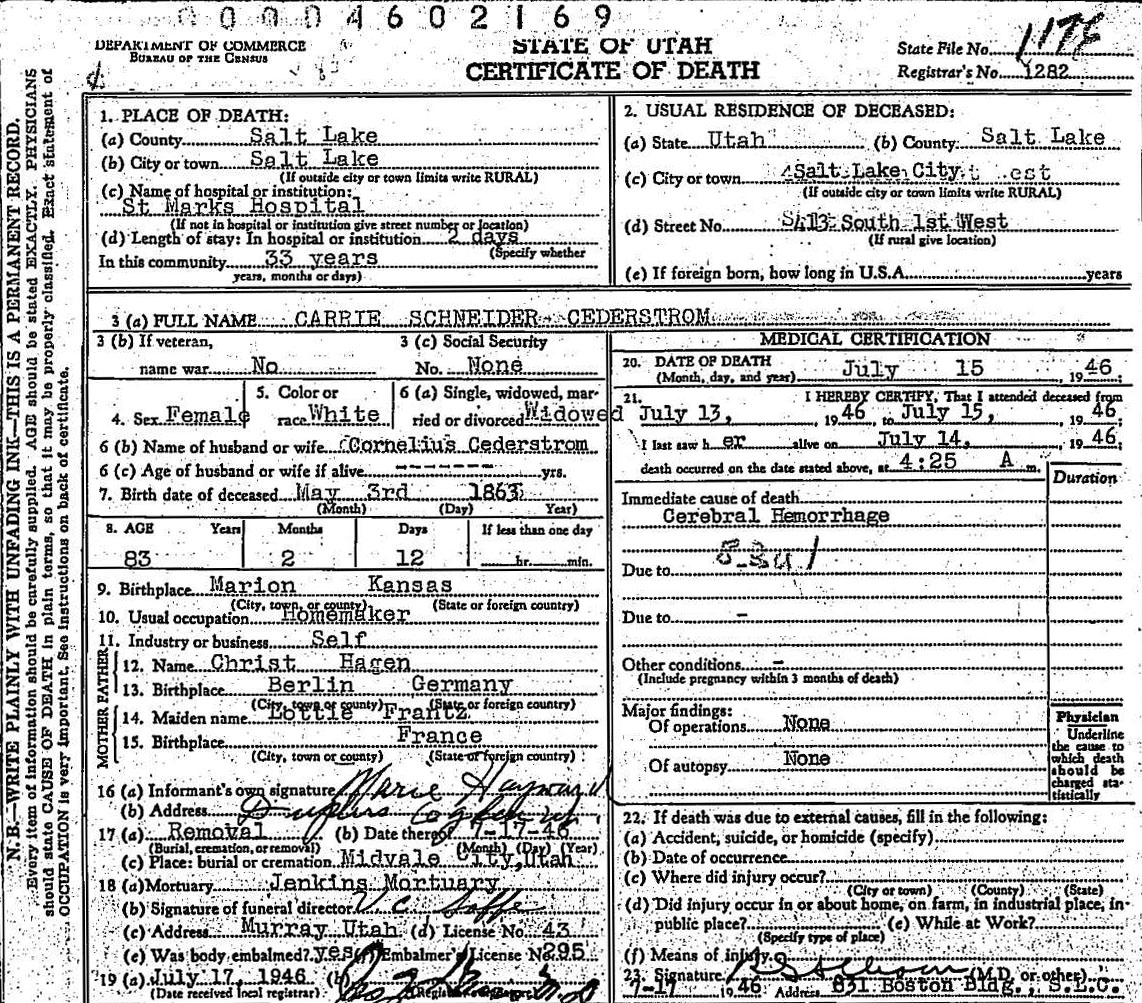 0 0 0 0 4 6 0 2 1 6 9
DEPARTMENT OF COMMERCE
BUREAU OF THE CENSUS
STATE OF UTAH
CERTIFICATE OF DEATH
State File No. 1176
Registrar's No. 1282
N. B.—WRITE PLAINLY WITH UNFADING INK—THIS IS A PERMANENT RECORD.
Every item of information should be carefully supplied. AGE should be stated EXACTLY. PHYSICIANS
should state CAUSE OF DEATH in plain terms, so that it may be properly classified. Exact statement of
OCCUPATION is very important. See instructions on back of certificate.
1. PLACE OF DEATH:
(a) County Salt Lake
(b) City or town Salt Lake
(If outside city or town limits write RURAL)
(c) Name of hospital or institution:
St Marks Hospital
(If not in hospital or institution give street number or location)
(d) Length of stay: In hospital or institution 2 days
(Specify whether
In this community 33 years
years, months or days)
2. USUAL RESIDENCE OF DECEASED:
(a) State Utah (b) County Salt Lake
(c) City or town Salt Lake City
(If outside city or town limits write RURAL)
(d) Street No. 13 South 1st West
(If rural give location)
(e) If foreign born, how long in U.S.A. years
3 (a) FULL NAME CARRIE SCHNEIDER CEDERSTROM
3 (b) If veteran,
name war No
3 (c) Social Security
No. None
4. Sex Female
5. Color or
race White
6 (a) Single, widowed, mar-
ried or divorced Widowed
6 (b) Name of husband or wife Cornelius Cederstrom
6 (c) Age of husband or wife if alive ------- yrs.
7. Birth date of deceased May 3rd 1863
(Month) (Day) Year)
8. AGE Years Months Days If less than one day
83 2 12 hr. min.
9. Birthplace Marion Kansas
(City, town, or county) (State or foreign country)
10. Usual occupation Homemaker
11. Industry or business Self
FATHER
12. Name Christ Hagen
13. Birthplace Berlin Germany
(City, town or county) (State or foreign country)
MOTHER
14. Maiden name Lottie Frantz
15. Birthplace France
(City, town or county) (State or foreign country)
16 (a) Informant's own signature Marie Hayward
(b) Address
17 (a) Removal (b) Date thereof 7-17-46
(Burial, cremation, or removal) (Month) (Day) (Year)
(c) Place: burial or cremation Midvale City, Utah
18 (a) Mortuary Jenkins Mortuary
(b) Signature of funeral director
(c) Address Murray Utah (d) License No. 43
(e) Was body embalmed? yes (f) Embalmer's License No. 295
19 (a) July 17, 1946 (b)
(Date received local registrar) (Registrar's
MEDICAL CERTIFICATION
20. DATE OF DEATH
(Month, day, and year) July 15 1946;
21. I HEREBY CERTIFY, That I attended deceased from
July 13, 1946 to July 15, 1946;
I last saw h er alive on July 14, 1946;
death occurred on the date stated above, at 4:25 A m.
Duration
Immediate cause of death
Cerebral Hemorrhage
Due to
Due to -
Other conditions -
(Include pregnancy within 3 months of death)
Major findings:
Of operations None
Of autopsy None
Physician
Underline
the cause to
which death
should be
charged sta-
tistically
22. If death was due to external causes, fill in the following:
(a) Accident, suicide, or homicide (specify)
(b) Date of occurrence
(c) Where did injury occur?
(City or town) (County) (State)
(d) Did injury occur in or about home, on farm, in industrial place, in-
public place? (e) While at Work?
(Specify type of place)
(f) Means of injury
23. Signature (M.D. or other)
7-17 1946 Address 831 Boston Bldg., S.L.C.